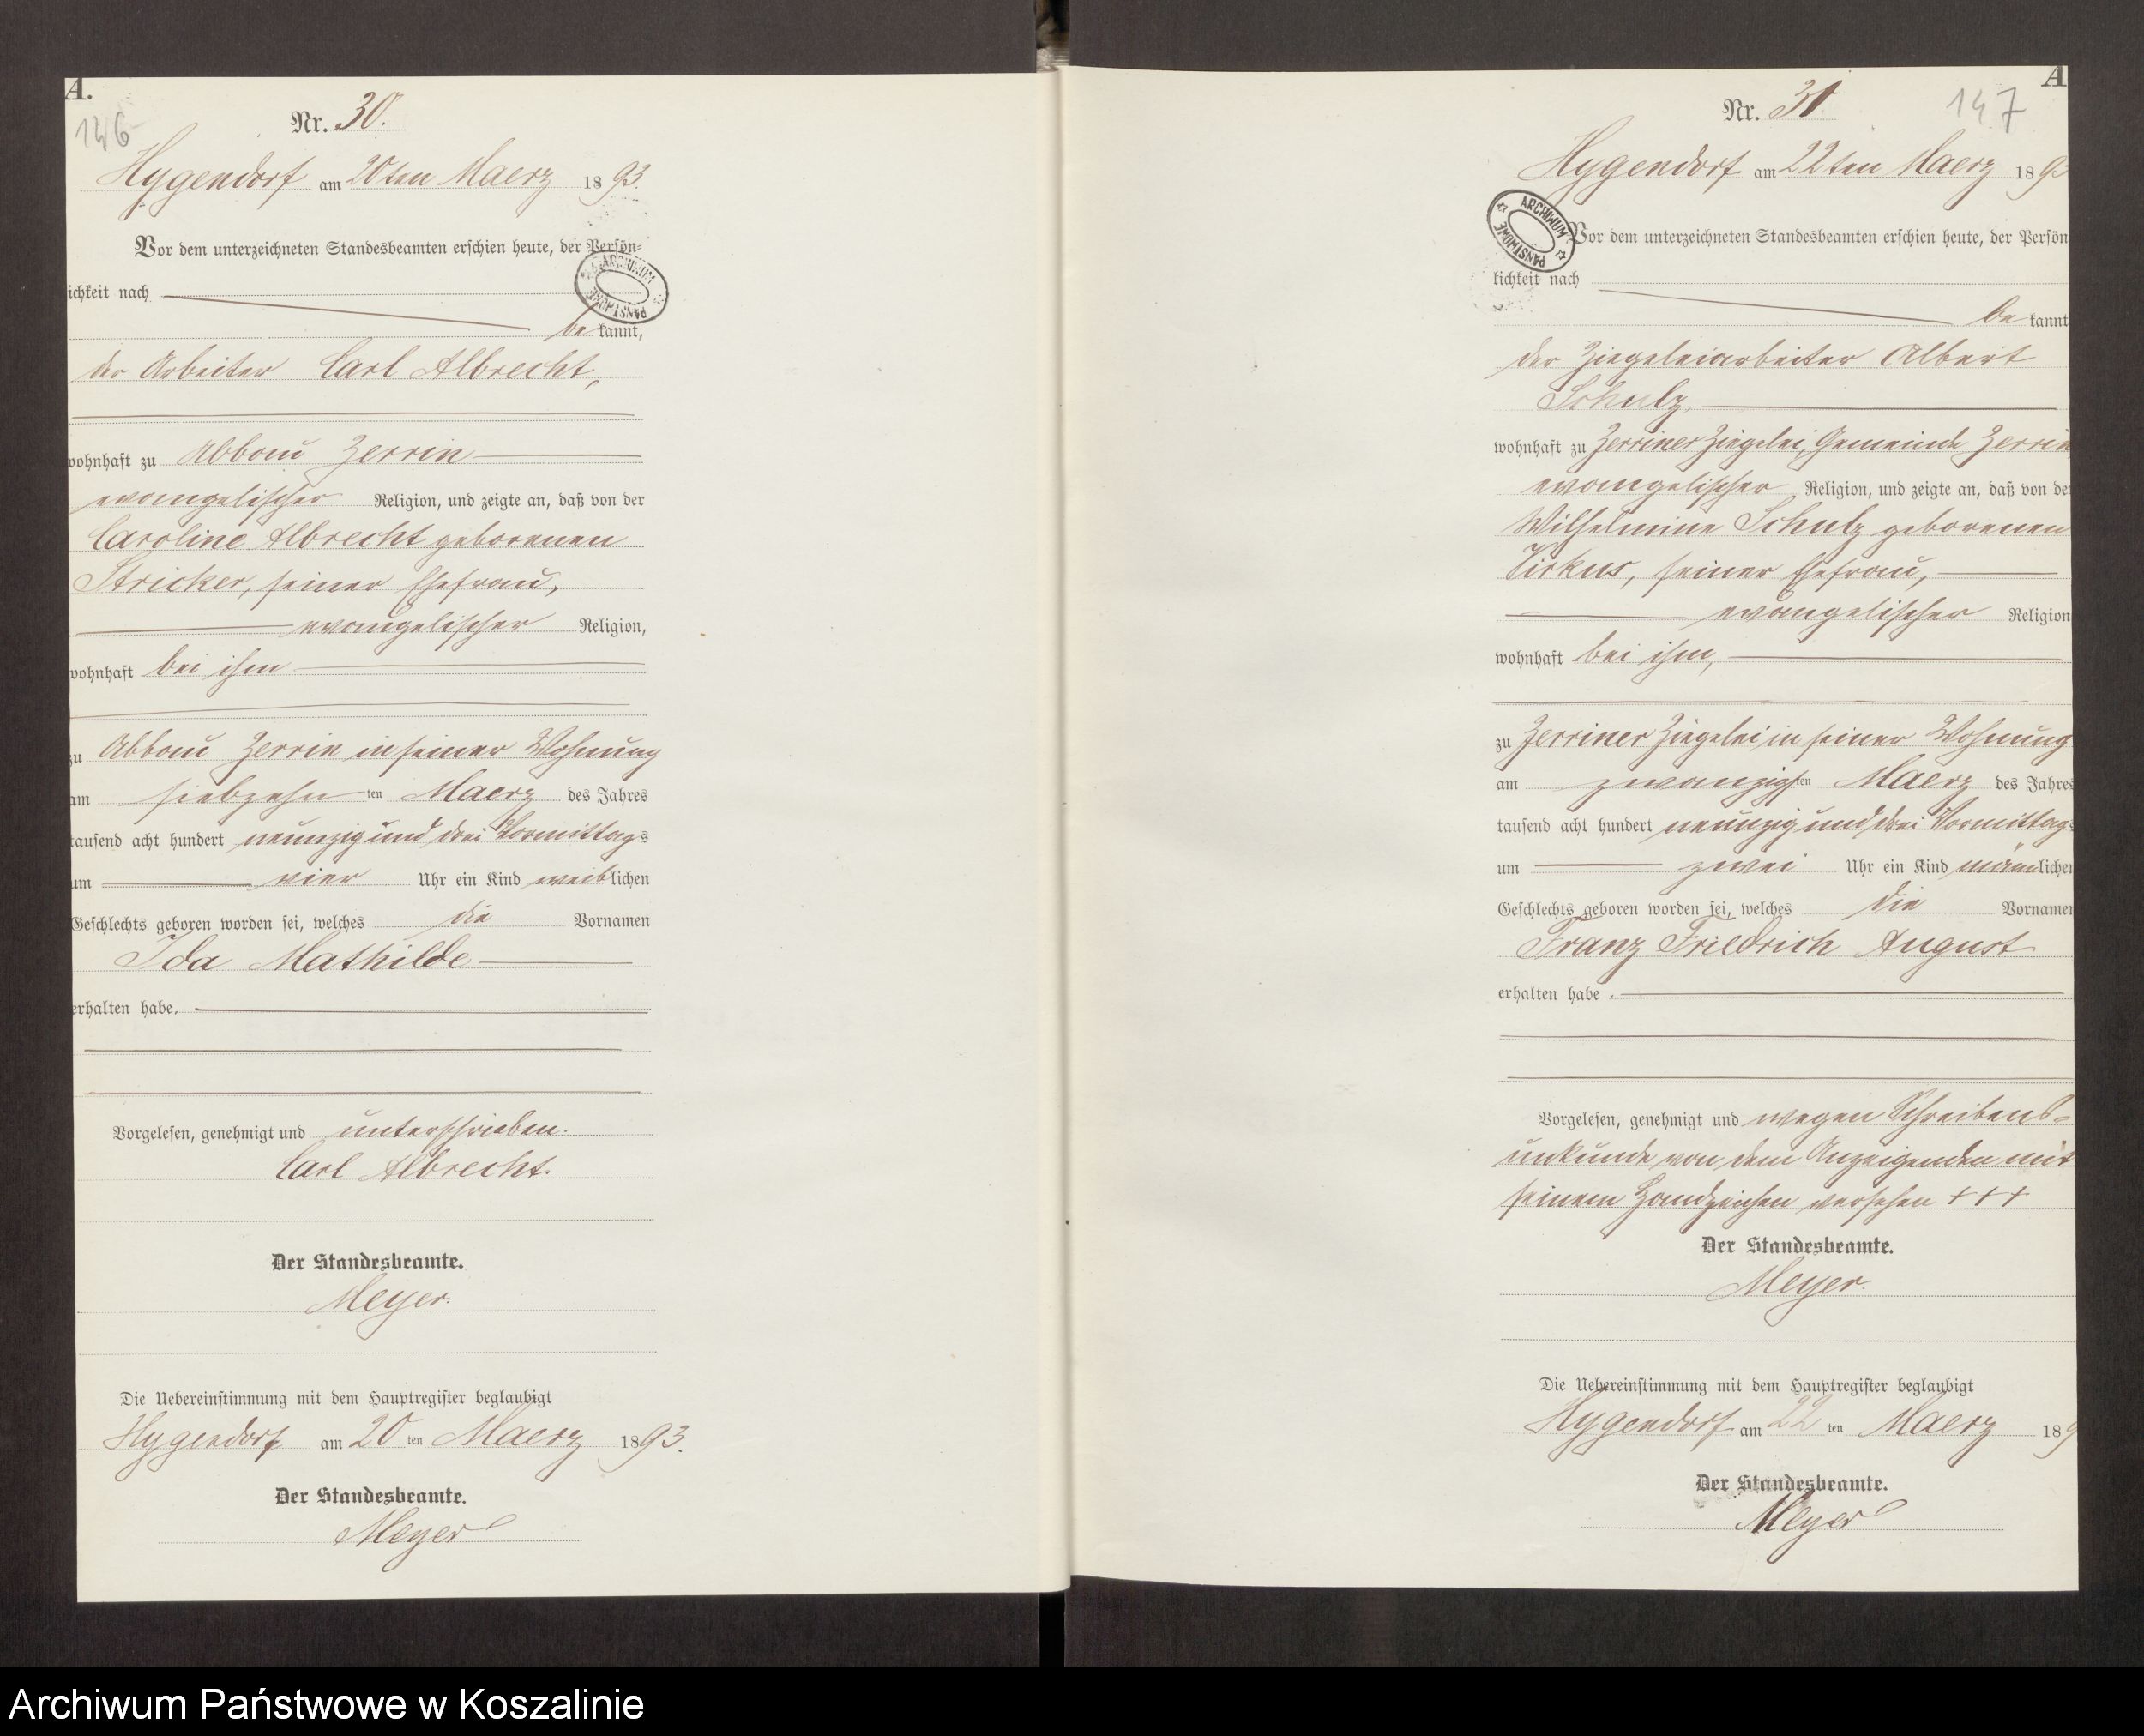 A.
146
Nr. 30.
Hygendorf am 20ten Maerz 1893.
Vor dem unterzeichneten Standesbeamten erschien heute, der Persön-
ichkeit nach
be kannt,
der Arbeiter Carl Albrecht,
wohnhaft zu Abbau Zerrin
evangelischer Religion, und zeigte an, daß von der
Caroline Albrecht geborenen
Stricker, seiner Ehefrau,
evangelischer Religion,
wohnhaft bei ihm
zu Abbau Zerrin in seiner Wohnung
am siebzehn ten Maerz des Jahres
tausend acht hundert neunzig und drei Vormittags
um vier Uhr ein Kind weiblichen
Geschlechts geboren worden sei, welches die Vornamen
Ida Mathilde
erhalten habe.
Vorgelesen, genehmigt und unterschrieben.
Carl Albrecht.
Der Standesbeamte.
Meyer.
Die Uebereinstimmung mit dem Hauptregister beglaubigt
Hygendorf am 20 ten Maerz 1893.
Der Standesbeamte.
Meyer
A
147
Nr. 31.
Hygendorf am 22ten Maerz 189
ARCHIWUM PAŃSTWOWE
Vor dem unterzeichneten Standesbeamten erschien heute, der Persön
lichkeit nach
be kannt
der Ziegeleiarbeiter Albert
Schulz,
wohnhaft zu Zerriner Ziegelei, Gemeinde Zerrin
evangelischer Religion, und zeigte an, daß von der
Wilhelmine Schulz geborenen
seiner Ehefrau,
evangelischer Religion
wohnhaft bei ihm,
zu Zerriner Ziegelei in seiner Wohnung
am zwanzigsten Maerz des Jahres
tausend acht hundert neunzig und drei Vormittags
um zwei Uhr ein Kind männlichen
Geschlechts geboren worden sei, welches die Vornamen
Franz Friedrich August
erhalten habe.
Vorgelesen, genehmigt und wegen Schreibens-
unkunde von dem Anzeigenden mit
seinem Handzeichen versehen + + +
Der Standesbeamte.
Meyer.
Die Uebereinstimmung mit dem Hauptregister beglaubigt
Hygendorf am 22 ten Maerz 189
Der Standesbeamte.
Meyer
Archiwum Państwowe w Koszalinie